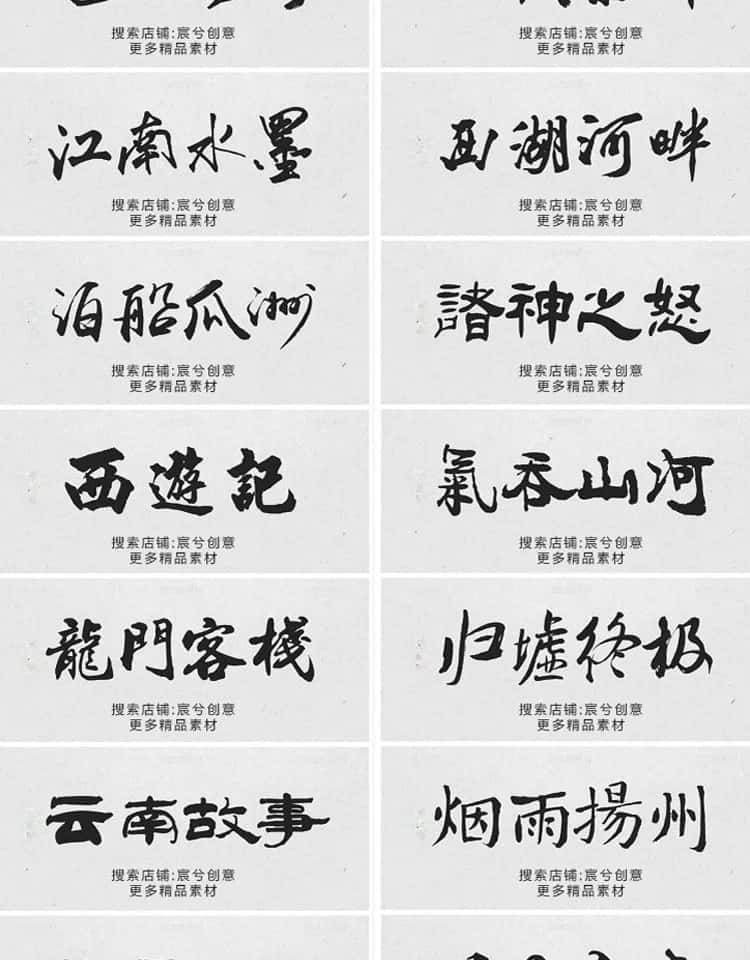 搜索店铺:宸兮创意
更多精品素材
搜索店铺:宸兮创意
更多精品素材
江南水墨
搜索店铺:宸兮创意
更多精品素材
西湖河畔
搜索店铺:宸兮创意
更多精品素材
泊船瓜洲
搜索店铺:宸兮创意
更多精品素材
諸神之怒
搜索店铺:宸兮创意
更多精品素材
西遊記
搜索店铺:宸兮创意
更多精品素材
氣吞山河
搜索店铺:宸兮创意
更多精品素材
龍門客棧
搜索店铺:宸兮创意
更多精品素材
归墟终极
搜索店铺:宸兮创意
更多精品素材
云南故事
搜索店铺:宸兮创意
更多精品素材
烟雨揚州
搜索店铺:宸兮创意
更多精品素材